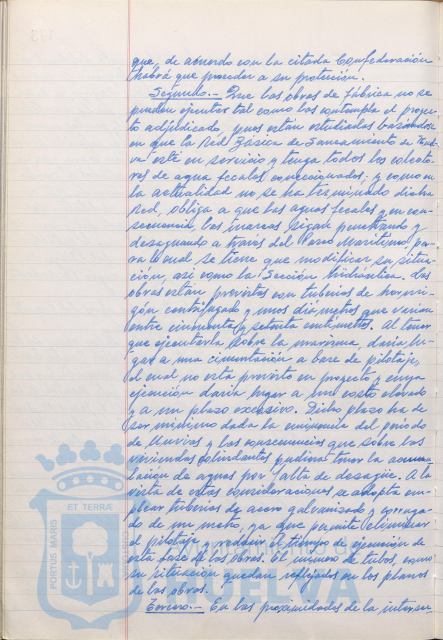 que, de acuerdo con la citada Confederación
habrá que proceder a su protección.
Segundo.- Que las obras de fábrica no se
pueden ejecutar tal como las contempla el proyec-
to adjudicado, pues están estudiadas basándose
en que la Red Básica de Saneamiento de Huel-
va esté en servicio y tenga todos los colecto-
res de agua fecales coleccionados, y como en
la actualidad no se ha terminado dicha
Red, obliga a que las aguas fecales y en con-
secuencia, las mareas sigan penetrando y
desaguando a través del Paseo Marítimo, pa-
ra lo cual se tiene que modificar su situa-
ción, así como la Sección Hidráulica. Las
obras están previstas con tuberías de hormi-
gón centrifugado y unos diámetros que varían
entre cincuenta y setenta centímetros. Al tener
que ejecutarla sobre la marisma, daría lu-
gar a una cimentación a base de pilotaje,
el cual no está previsto en proyecto y cuya
ejecución daría lugar a un costo elevado
y a un plazo excesivo. Dicho plazo ha de
ser mínimo dada la eminencia del periodo
de lluvias y las consecuencias que sobre las
viviendas colindantes pudiera tener la acumu-
lación de aguas por falta de desagüe. A la
vista de estas consideraciones se adopta em-
plear tuberías de acero galvanizado y corruga-
do de un metro, ya que permite eliminar
el pilotaje y reducir el tiempo de ejecución de
esta fase de las obras. El número de tubos, como
su situación quedan reflejados en los planos
de las obras.
Tercero.- En las proximidades de la intersec-
PORTUS MARIS
ET TERRÆ